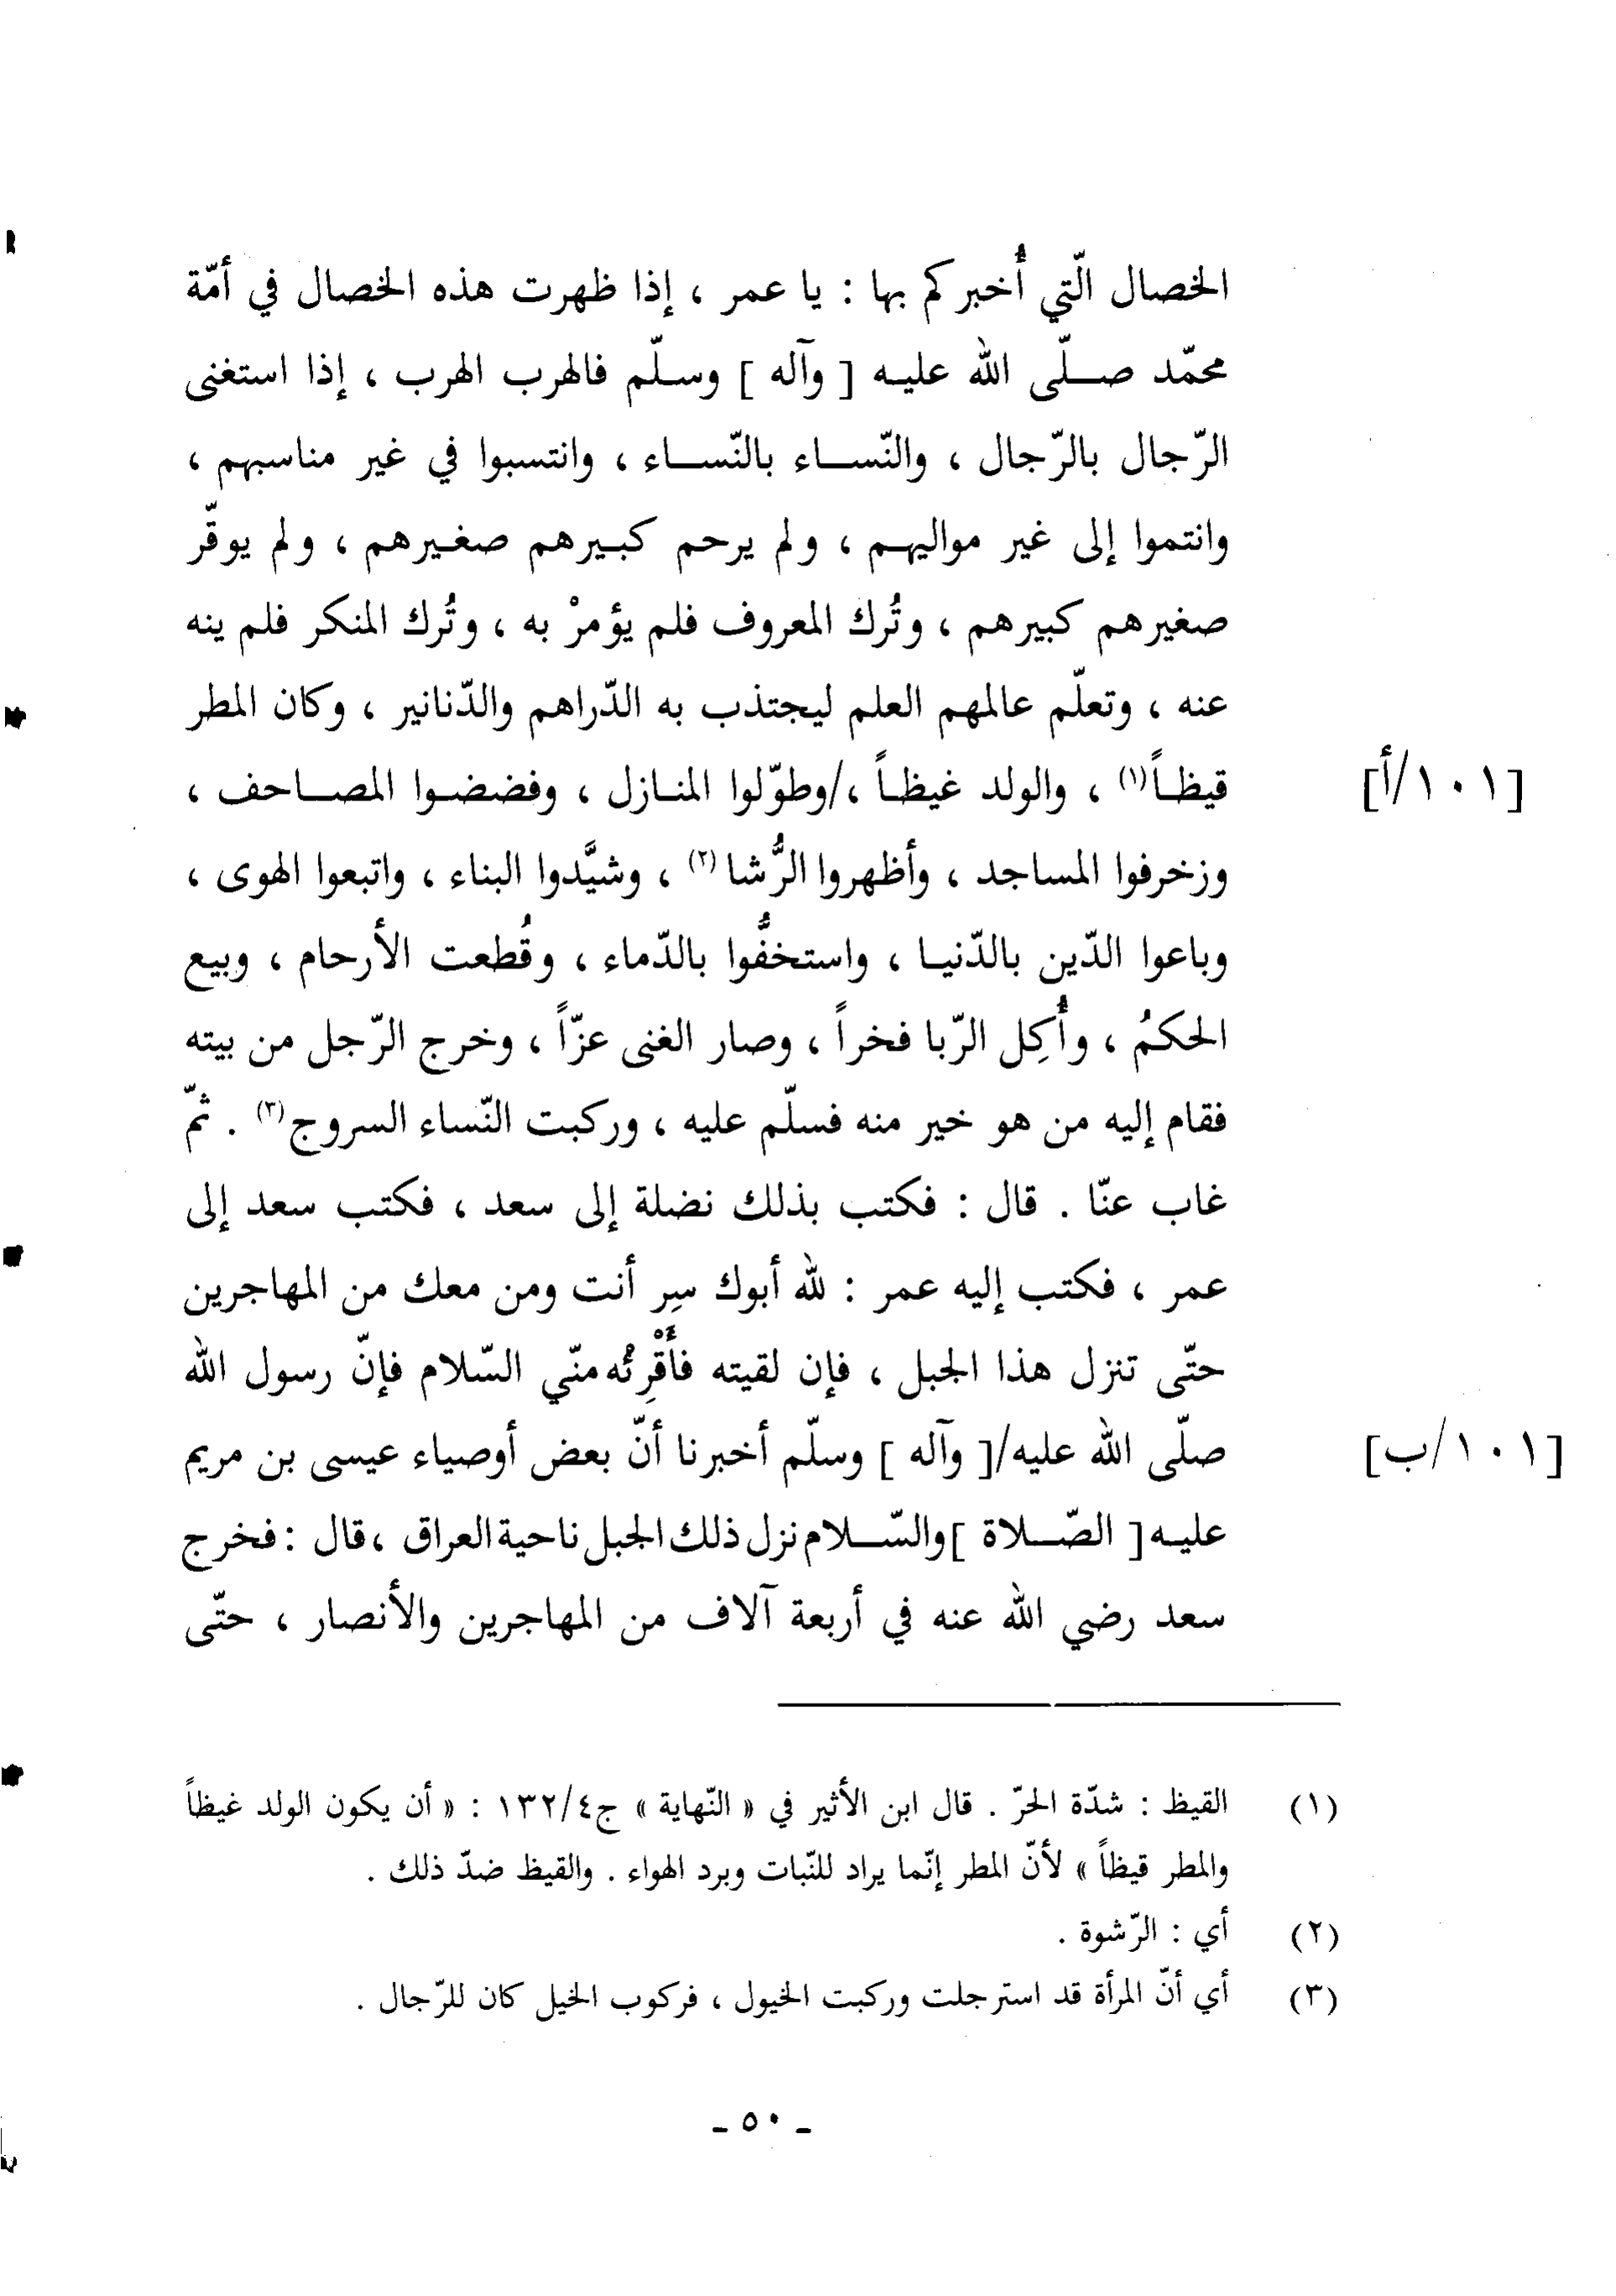 الخصال الّتي أُخبركم بها : يا عمر ، إذا ظهرت هذه الخصال في أمّة
محمّد صلّى الله عليه [ وآله ] وسلّم فالهرب الهرب ، إذا استغنى
الرّجال بالرّجال ، والنّساء بالنّساء ، وانتسبوا في غير مناسبهم ،
وانتموا إلى غير مواليهم ، ولم يرحم كبيرهم صغيرهم ، ولم يوقّر
صغيرهم كبيرهم ، وتُرك المعروف فلم يؤمرْ به ، وتُرك المنكر فلم ينه
عنه ، وتعلّم عالمهم العلم ليجتذب به الدّراهم والدّنانير ، وكان المطر
قيظاً(١) ، والولد غيظاً ،/وطوّلوا المنازل ، وفضضوا المصاحف ،
[١٠١/أ]
وزخرفوا المساجد ، وأظهروا الرُّشا(٢) ، وشيَّدوا البناء ، واتبعوا الهوى ،
وباعوا الدّين بالدّنيا ، واستخفُّوا بالدّماء ، وقُطعت الأرحام ، وبيع
الحكمُ ، وأُكِل الرّبا فخراً ، وصار الغنى عزّاً ، وخرج الرّجل من بيته
فقام إليه من هو خير منه فسلّم عليه ، وركبت النّساء السروج(٣) . ثمّ
غاب عنّا . قال : فكتب بذلك نضلة إلى سعد ، فكتب سعد إلى
عمر ، فكتب إليه عمر : لله أبوك سِر أنت ومن معك من المهاجرين
حتّى تنزل هذا الجبل ، فإن لقيته فأَقْرِئْه منّي السّلام فإنّ رسول الله
صلّى الله عليه/[ وآله ] وسلّم أخبرنا أنّ بعض أوصياء عيسى بن مريم
[١٠١/ب]
عليه [ الصّلاة ] والسّلام نزل ذلك الجبل ناحية العراق ، قال : فخرج
سعد رضي الله عنه في أربعة آلاف من المهاجرين والأنصار ، حتّى
(١) القيظ : شدّة الحرّ . قال ابن الأثير في « النّهاية » ج٤/١٣٢ : « أن يكون الولد غيظاً
والمطر قيظاً » لأنّ المطر إنّما يراد للنّبات وبرد الهواء . والقيظ ضدّ ذلك .
(٢) أي : الرّشوة .
(٣) أي أنّ المرأة قد استرجلت وركبت الخيول ، فركوب الخيل كان للرّجال .
ـ ٥٠ ـ